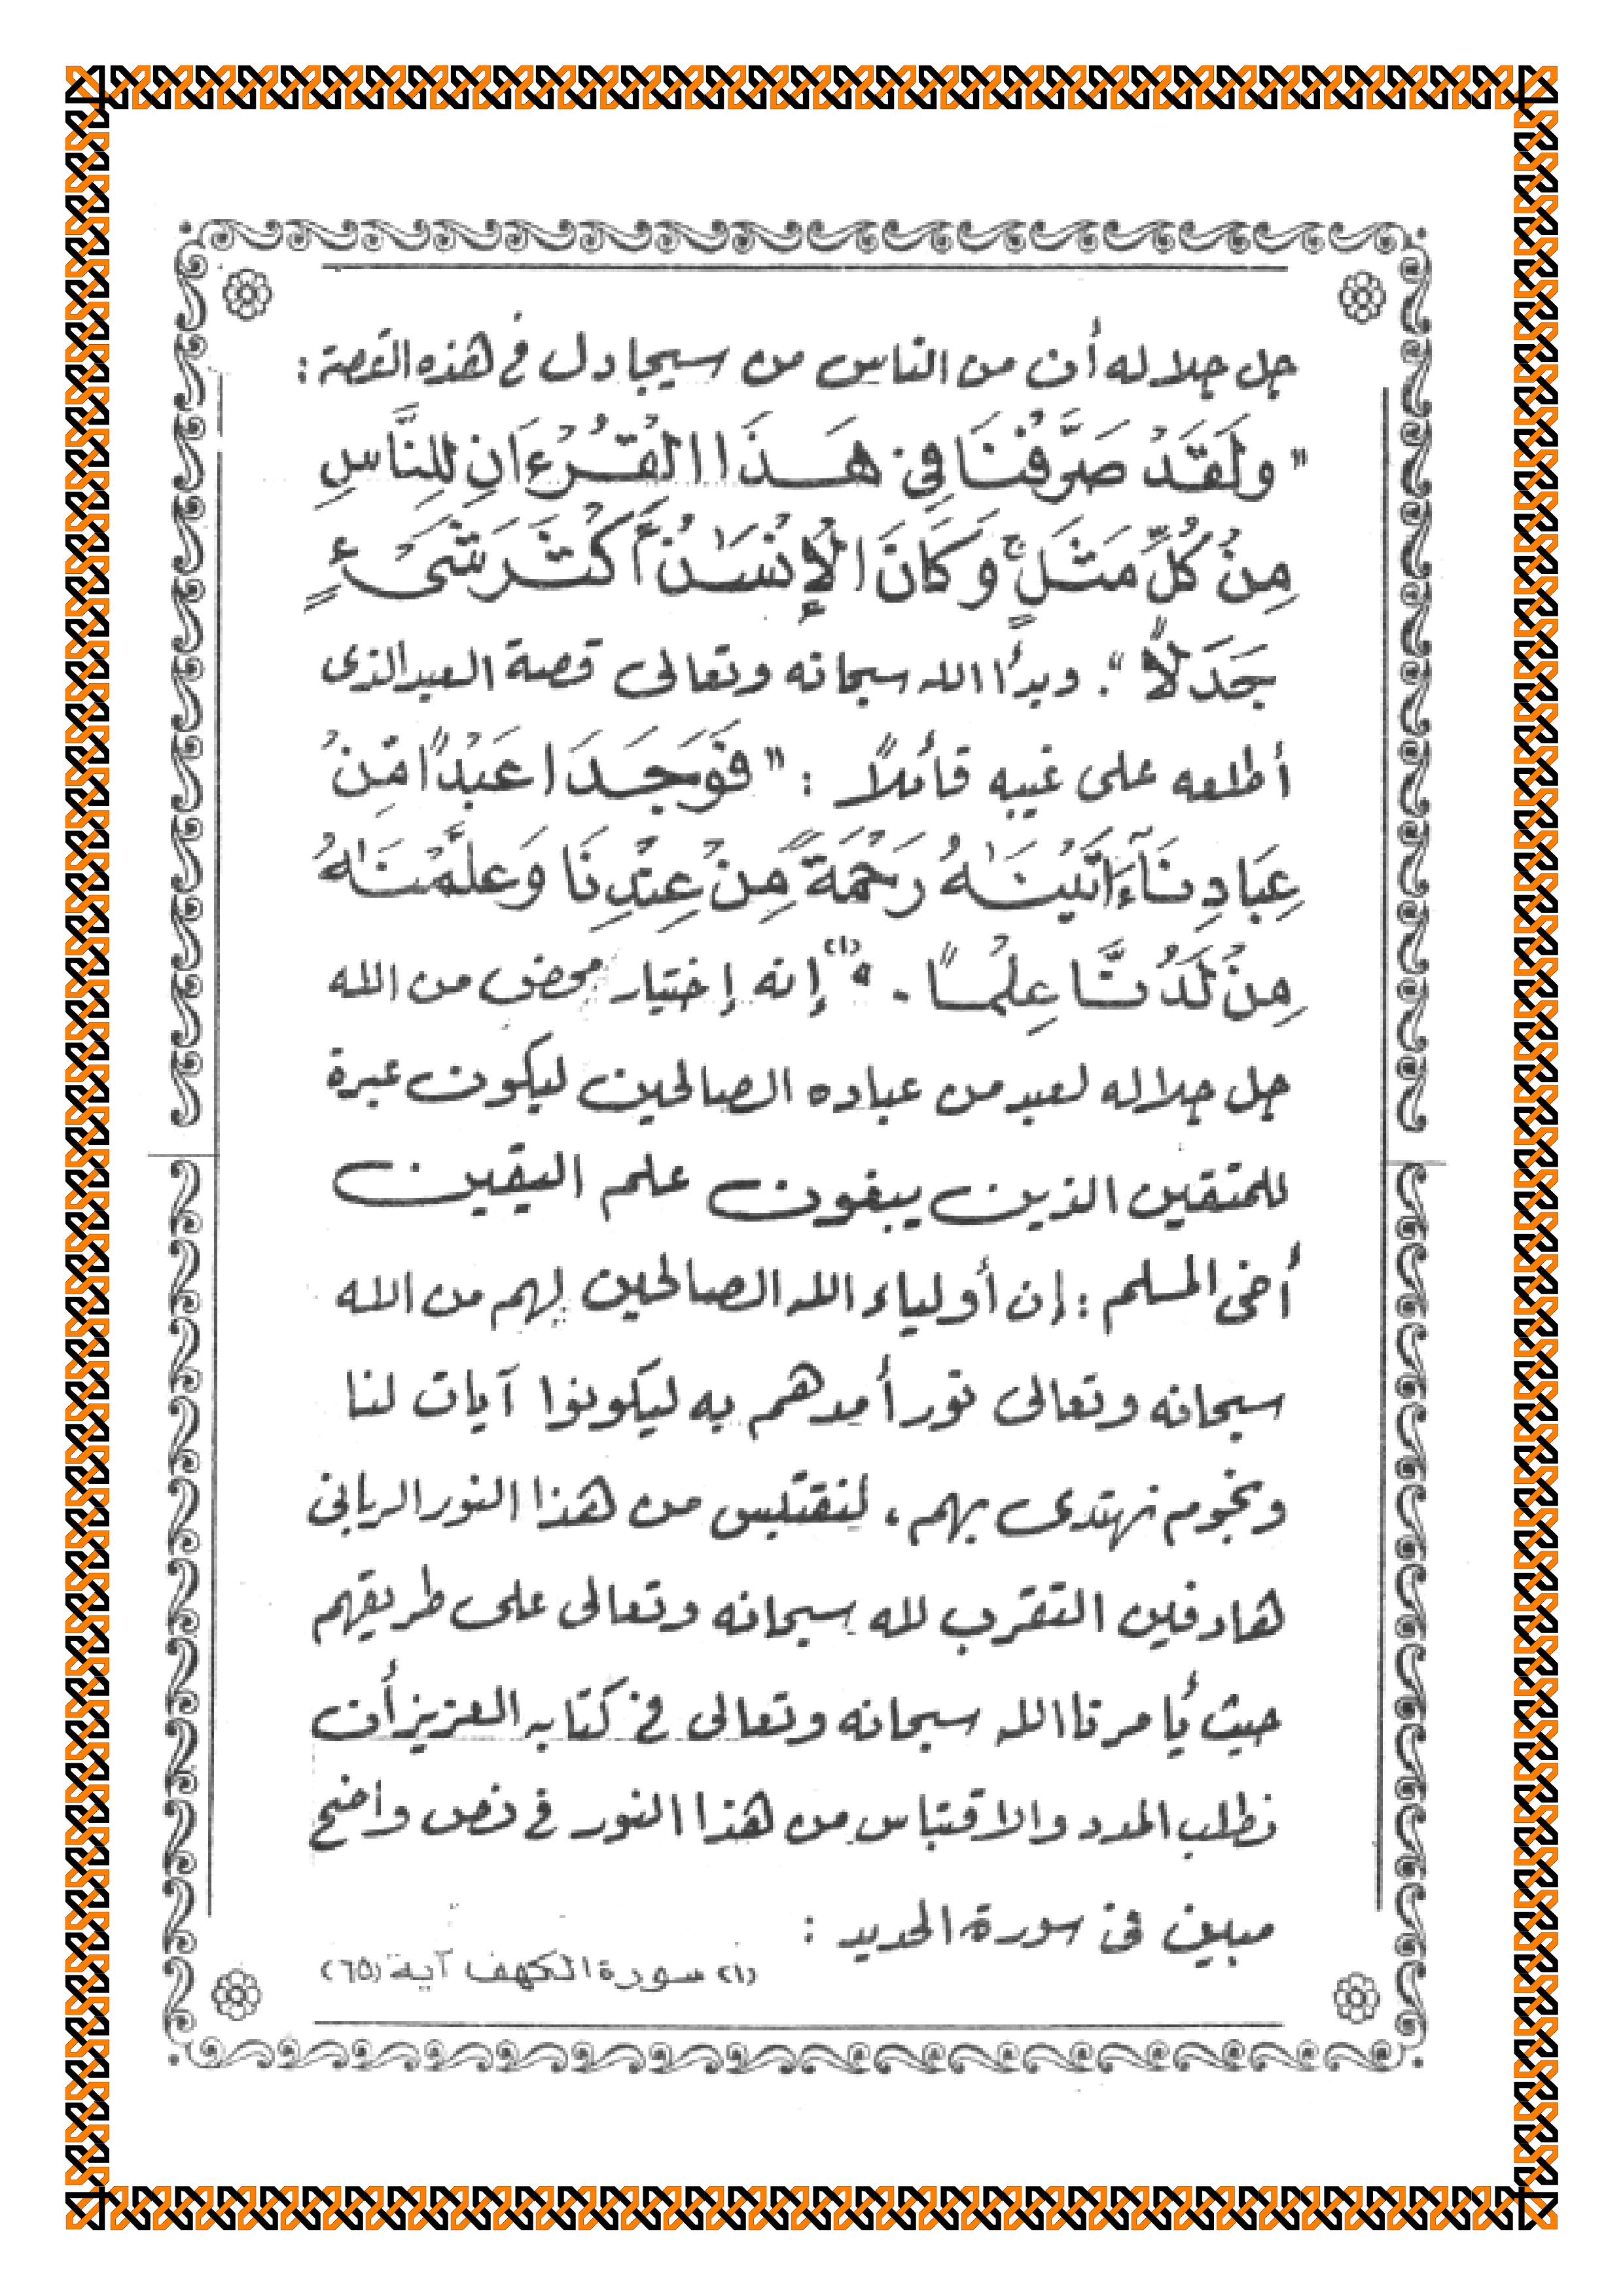 جل جلاله أن من الناس من سيجادل في هذه القصة :
" ولَقَدْ صَرَّفْنَا فِى هَـذَا الْقُـرْءَانِ لِلنَّاسِ
مِنْ كُلِّ مَثَلٍ ۚ وَكَانَ الْإِنْسَـٰنُ أَكْثَـرَ شَىْءٍ
جَدَلًا " . وبدأ الله سبحانه وتعالى قصة العبد الذى
أطلعه على غيبه قائلاً : " فَوَجَـدَا عَبْدًا مِّنْ
عِبَادِنَآ ءَاتَيْنَـٰهُ رَحْمَةً مِنْ عِنْدِنَا وَعَلَّمْنَـٰهُ
مِنْ لَدُنَّـا عِلْمًـا . " (١) إنه إختيار محض من الله
جل جلاله لعبد من عباده الصالحين ليكون عبرة
للمتقين الذين يبغون علم اليقين
أخى المسلم : إن أولياء الله الصالحين لهم من الله
سبحانه وتعالى نور أمدهم به ليكونوا آيات لنا
ونجوم نهتدى بهم ، لنقتبس من هذا النور الربانى
هادفين التقرب لله سبحانه وتعالى على طريقهم
حيث يأمرنا الله سبحانه وتعالى فى كتابه العزيز أن
نطلب المدد والاقتباس من هذا النور فى نص واضح
مبين فى سورة الحديد :
(١) سورة الكهف آية (٦٥)